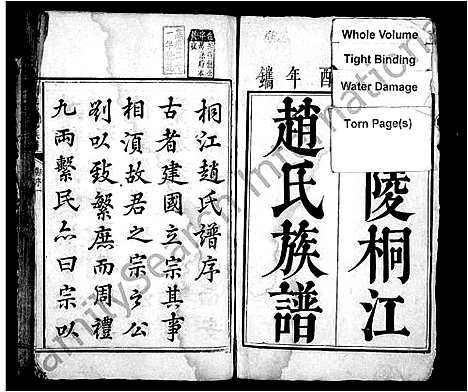 Whole Volume
Tight Binding
Water Damage
Torn Page(s)
酉年鐫
陵桐江
趙氏族譜
桐江趙氏譜序
古者建國立宗其事
相須故君之宗之公
劉以致繁庶而周禮
九兩繫民亦曰宗以
FamilySearch International